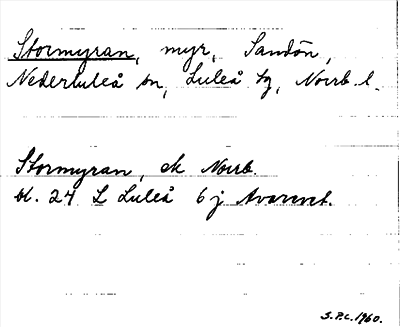 Stormyran, myr, Sandön,
Nederluleå sn, Luleå tg, Norrb. l.
Stormyran, ek Norrb.
bl. 24 L Luleå 6j Avarevet.
S.P.C. 1960.